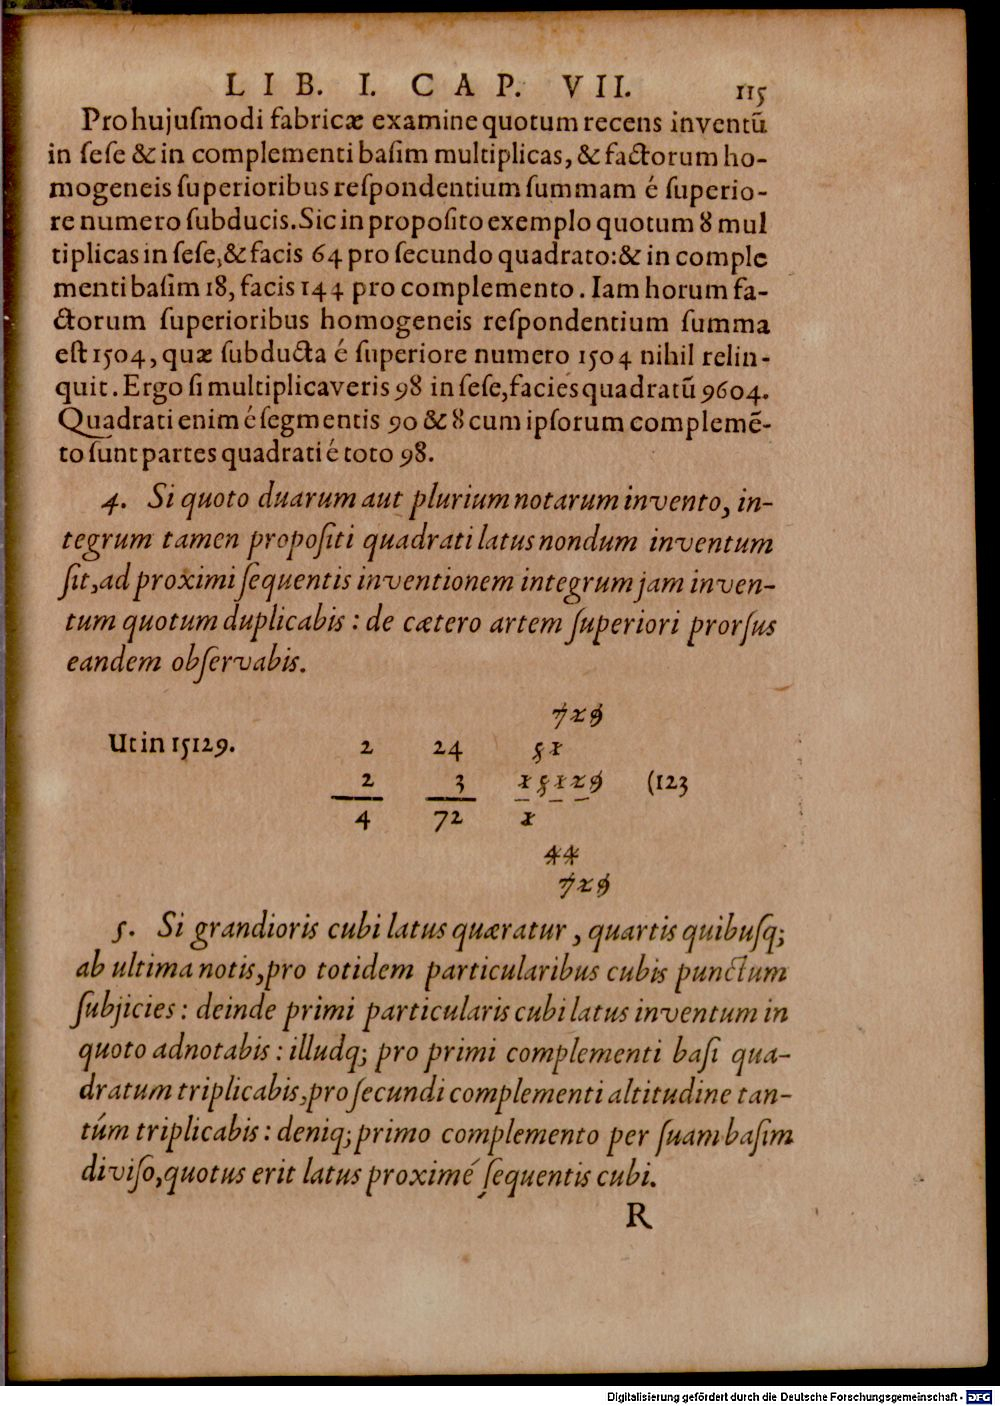 LIB. I. CAP. VII. 115
Pro hujuſmodi fabricæ examine quotum recens inventũ
in ſeſe & in complementi baſim multiplicas, & factorum ho-
mogeneis ſuperioribus reſpondentium ſummam é ſuperio-
re numero ſubducis. Sic in propoſito exemplo quotum 8 mul
tiplicas in ſeſe, & facis 64 pro ſecundo quadrato: & in comple
menti baſim 18, facis 144 pro complemento. Iam horum fa-
ctorum ſuperioribus homogeneis reſpondentium ſumma
eſt 1504, quæ ſubducta é ſuperiore numero 1504 nihil relin-
quit. Ergo ſi multiplicaveris 98 in ſeſe, facies quadratũ 9604.
Quadrati enim é ſegmentis 90 & 8 cum ipſorum complemẽ-
to ſunt partes quadrati é toto 98.
4. Si quoto duarum aut plurium notarum invento, in-
tegrum tamen propoſiti quadrati latus nondum inventum
ſit, ad proximi ſequentis inventionem integrum jam inven-
tum quotum duplicabis: de cætero artem ſuperiori prorſus
eandem obſervabis.
729
Ut in 15129. 2 24 51
2 3 15129 (123
4 72 1
44
729
5. Si grandioris cubi latus quæratur, quartis quibuſq;
ab ultima notis, pro totidem particularibus cubis punctum
ſubjicies: deinde primi particularis cubi latus inventum in
quoto adnotabis: illudq; pro primi complementi baſi qua-
dratum triplicabis, pro ſecundi complementi altitudine tan-
túm triplicabis: deniq; primo complemento per ſuam baſim
diviſo, quotus erit latus proximé ſequentis cubi.
R
Digitalisierung gefördert durch die Deutsche Forschungsgemeinschaft - DFG